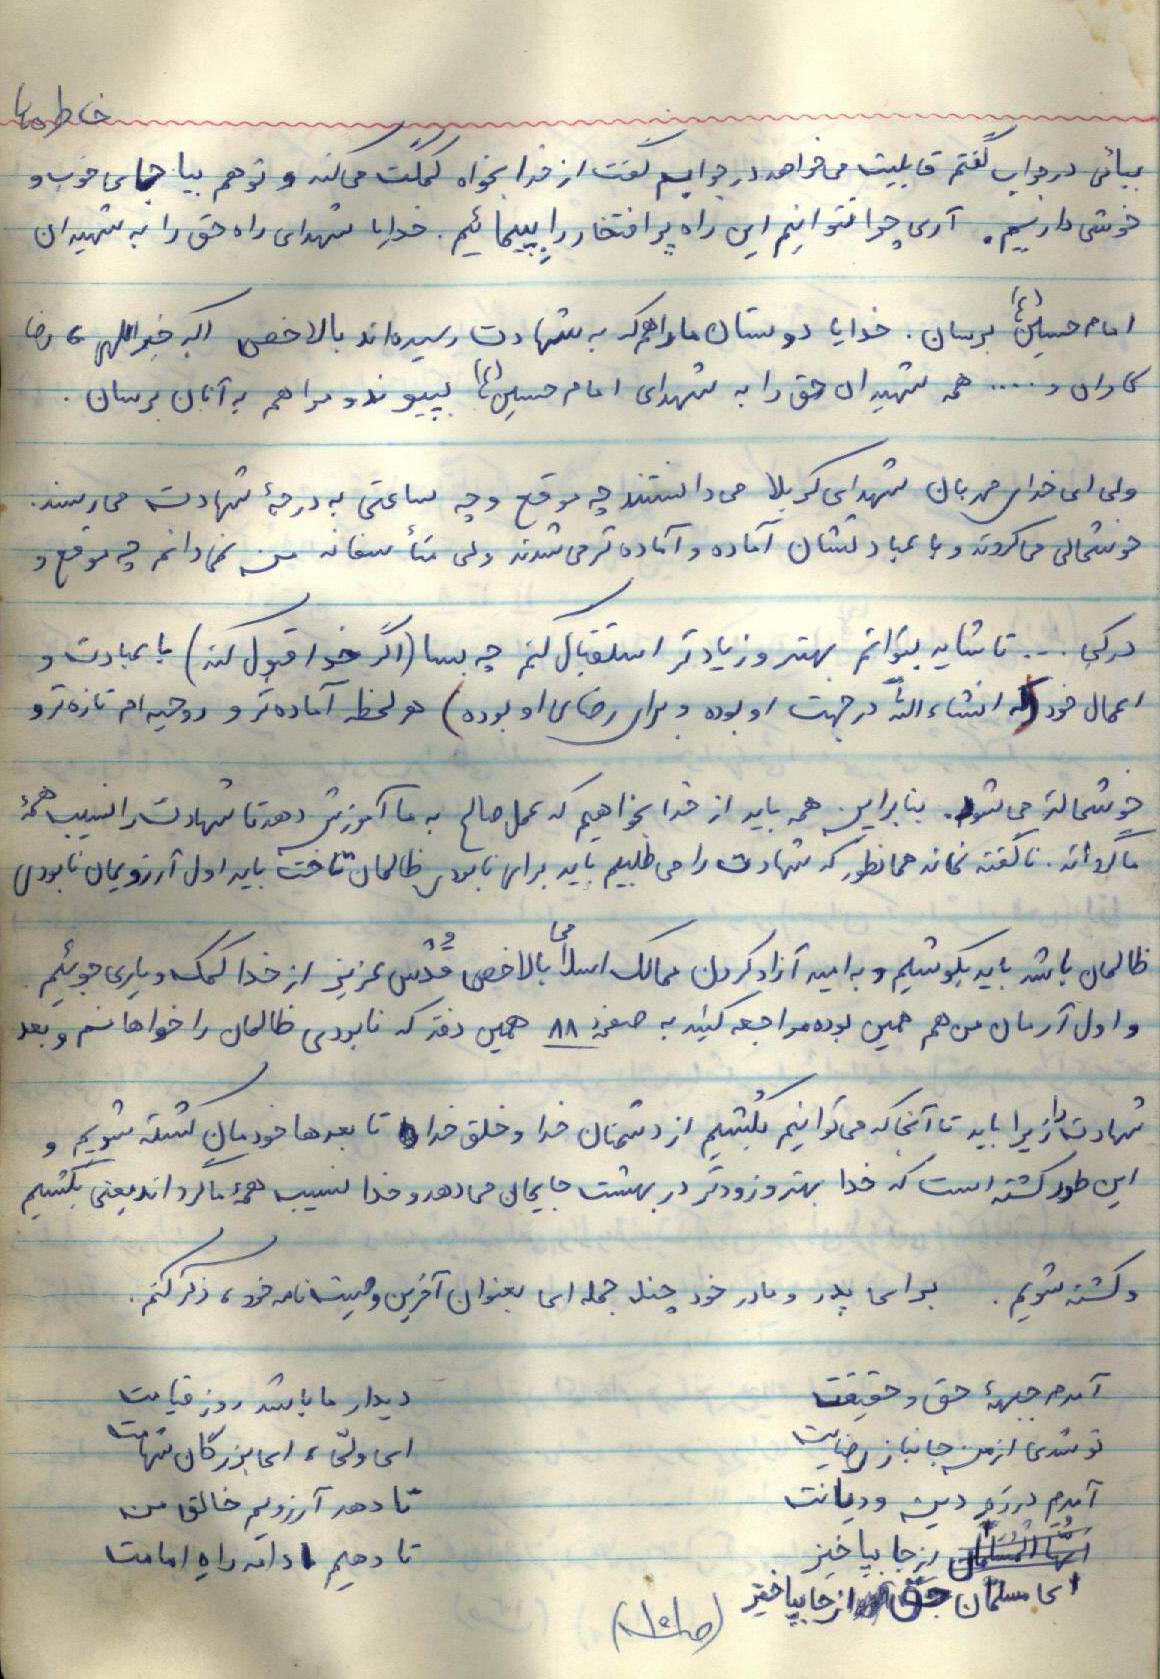 خاطره‌ها
بیائی در جواب گفتم قابلیت می‌خواهد در جوابم گفت از خدا بخواه کمکت می‌کند و تو هم بیا جای خوب و
خوشی داریم. آری چرا نتوانیم این راه پر افتخار را بپیمائیم. خدایا شهدای راه حق را به شهیدان
امام حسین (ع) برسان. خدایا دوستان ما را هم که به شهادت رسیده‌اند بالاخص اکبر خیراللهی، رضا
کاوان و .... همه شهیدان حق را به شهدای امام حسین (ع) بپیوند و مرا هم به آنان برسان.
ولی ای خدای مهربان شهدای کربلا می‌دانستند چه موقع و چه ساعتی به درجهٔ شهادت می‌رسند.
خوشحالی می‌کردند و با عبادتشان آماده و آماده‌تر می‌شدند ولی متأسفانه من نمیدانم چه موقع و
در کی ... تا شاید بتوانم بهتر و زیادتر استقبال کنم چه بسا (اگر خدا قبول کند) با عبادت و
اعمال خود (که انشاءالله در جهت او بوده و برای رضای او بوده) هر لحظه آماده‌تر و روحیه‌ام تازه‌تر و
خوشحالتر می‌شود. بنابراین همه باید از خدا بخواهیم که عمل صالح به ما آموزش دهد تا شهادت را نسیب همهٔ
ما گرداند. ناگفته نماند همانطور که شهادت را می‌طلبیم باید برای نابودی ظالمان تاخت باید اول آرزویمان نابودی
ظالمان باشد باید بکوشیم و به امید آزاد کردن ممالک اسلامی بالاخص قدس عزیز از خدا کمک و یاری جوئیم.
و اول آرمان من هم همین بوده مراجعه کنید به صفحهٔ ۸۸ همین دفتر که نابودی ظالمان را خواهانم و بعد
شهادت را زیرا باید تا آنجا که می‌توانیم بکُشیم از دشمنان خدا و خلق خدا تا بعدها خودمان کشته شویم و
این طور کشته است که خدا بهتر و زودتر در بهشت جایمان می‌دهد و خدا نسیب همهٔ ما گرداند یعنی بکشیم
و کشته شویم. برای پدر و مادر خود چند جمله ای بعنوان آخرین وصیت‌نامه خود، ذکر کنم.
آمدم جبههٔ حق و حقیقت دیدار ما باشد روز قیامت
تو شدی از من جانباز رضایت ای ولی، ای بزرگان شهامت
آمدم در رزم دین و دیانت تا دهد آرزویم خالق من
از جا بپا خیز تا دهیم ادامه راهِ امامت
ای مسلمان حق از جا بپا خیز